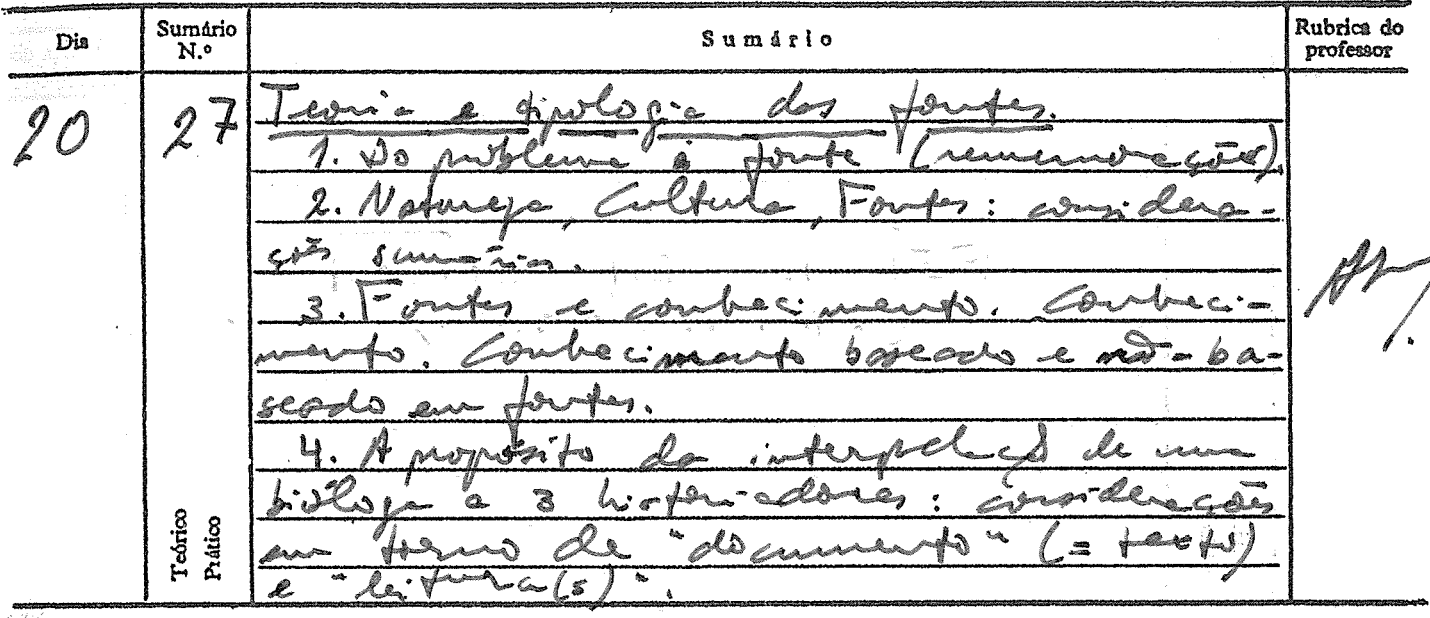 Dia
Sumário N.º
Sumário
Rubrica do professor
20
27
Teoria e tipologia das fontes.
1. Do problema à fonte (rememorações).
2. Natureza, Cultura, Fontes: considera-
ções sumárias.
3. Fontes e conhecimento. Conheci-
mento. Conhecimento baseado e não-ba-
seado em fontes.
4. A propósito da interpelação de uma
bióloga a 3 historiadores: considerações
em torno de "documento" (= texto)
e "leitura(s)".
Teórico
Prático